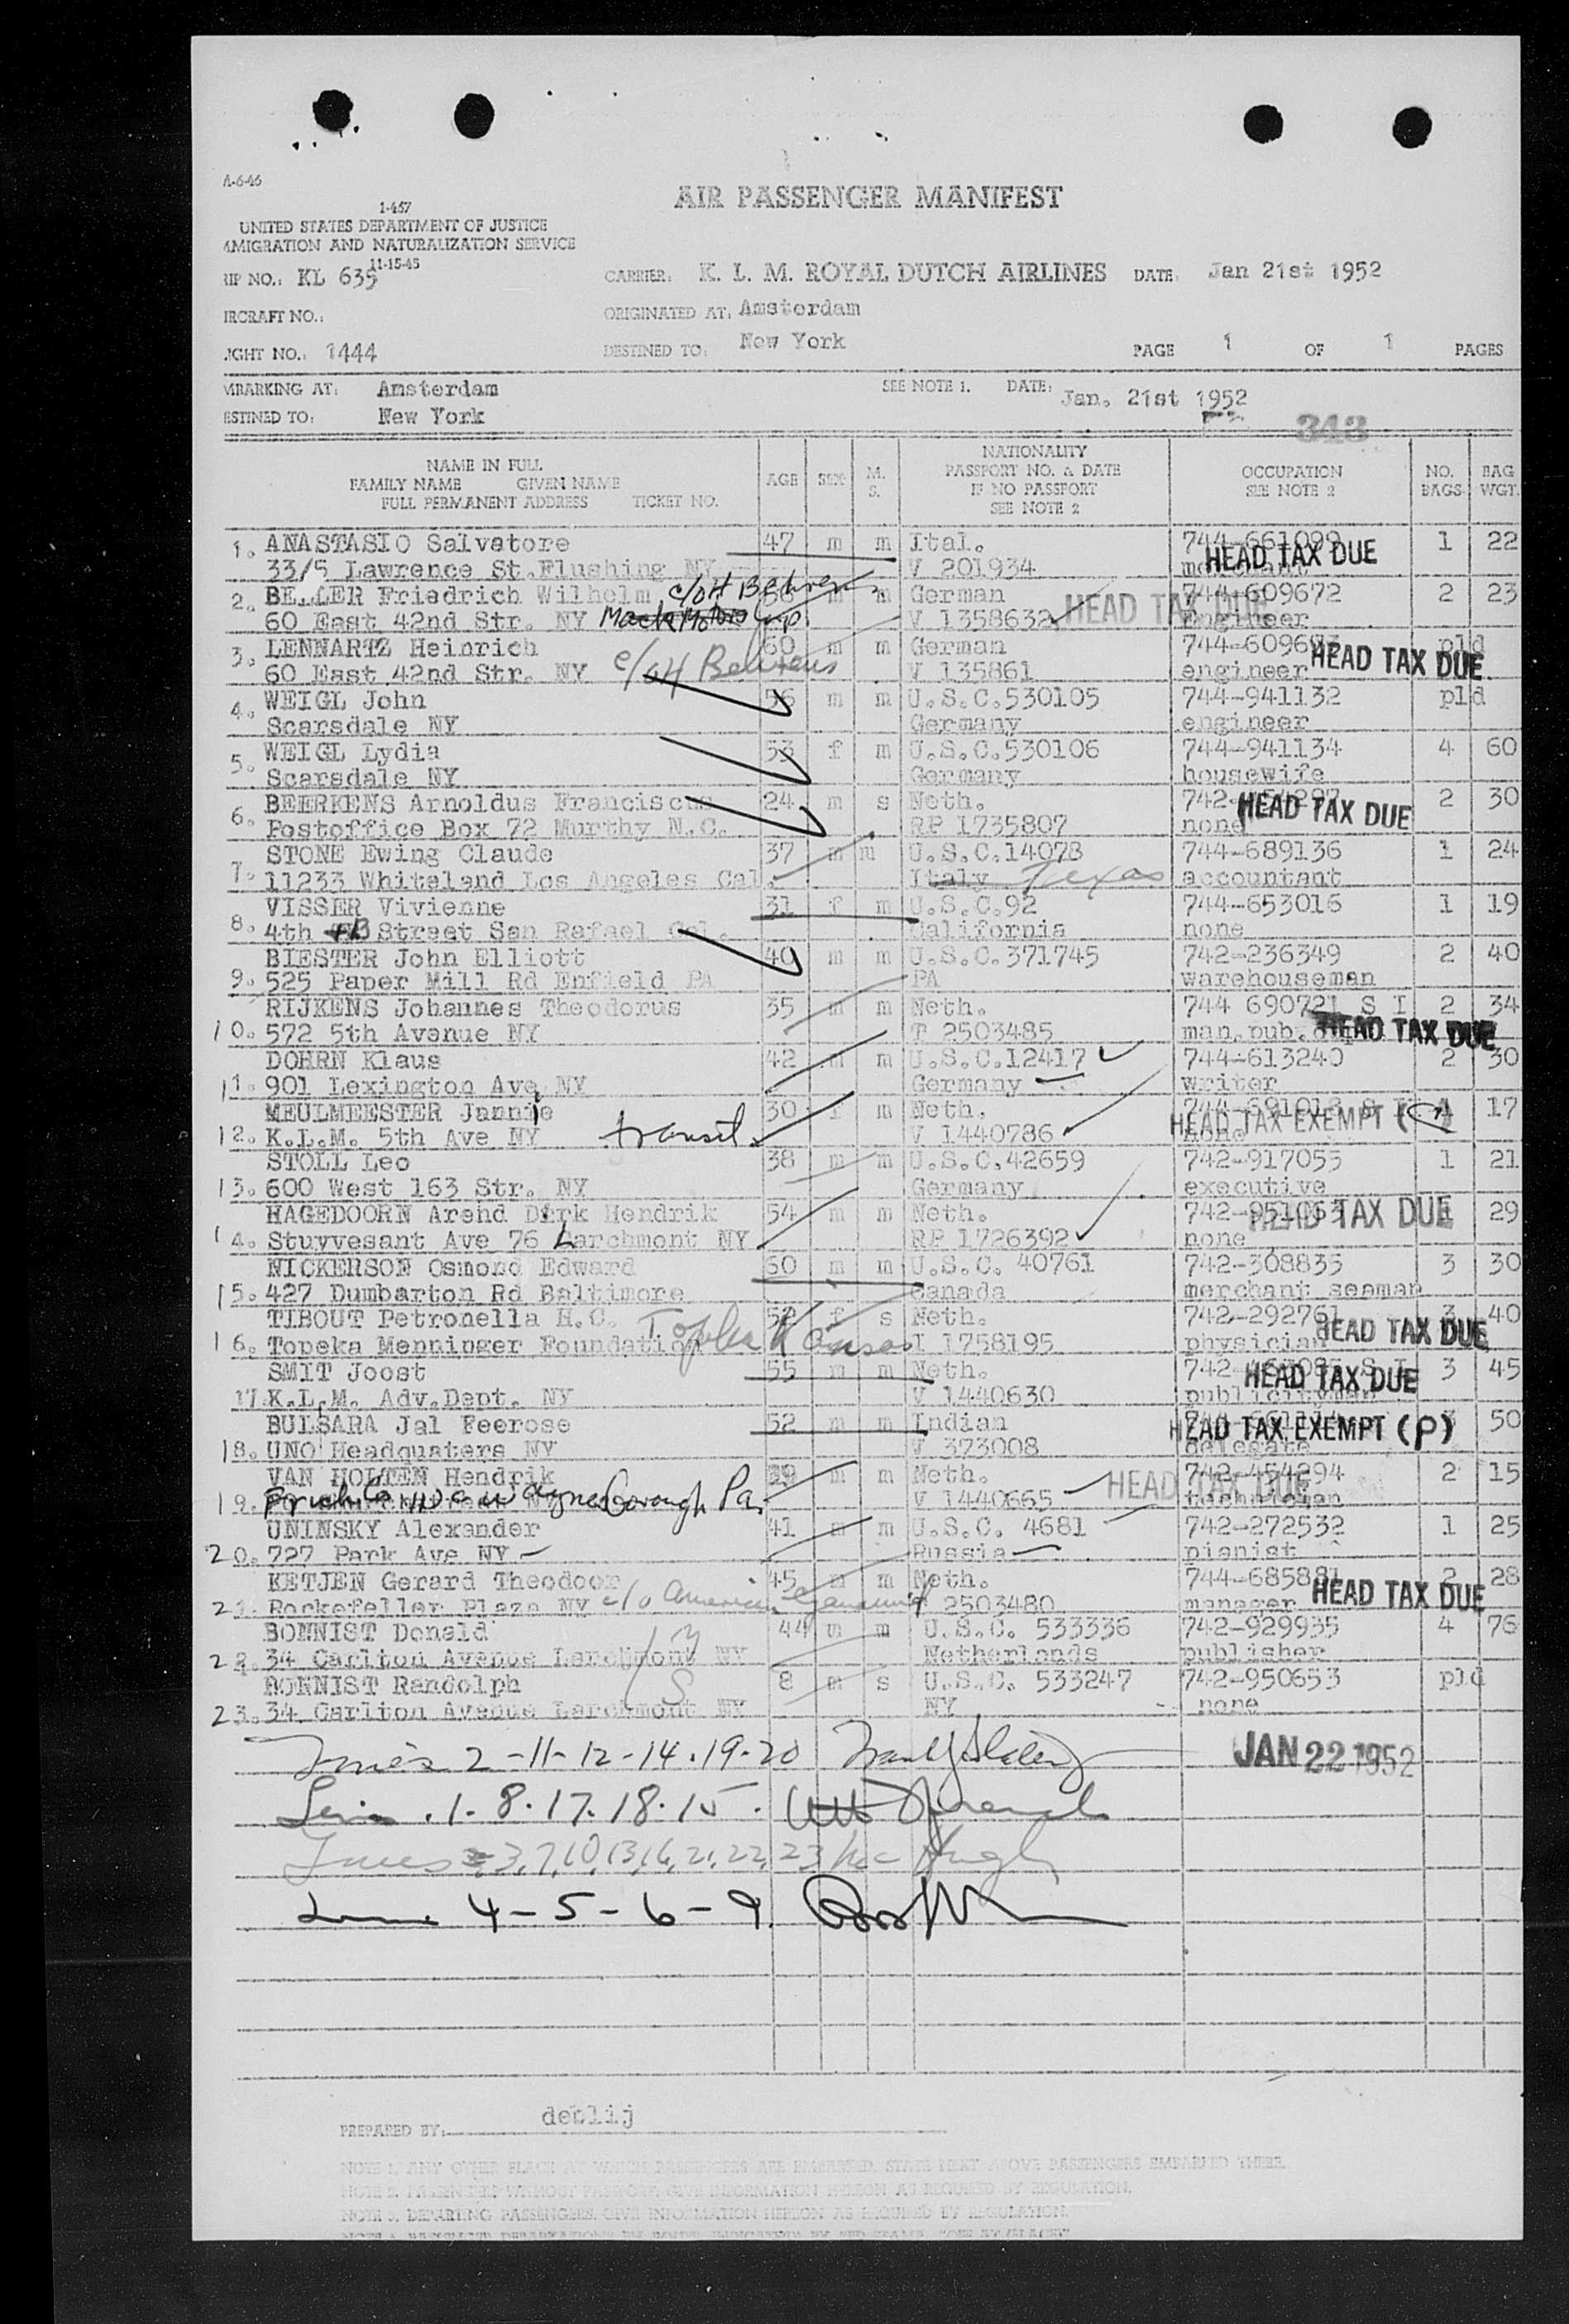 A-6-46
1-457
AIR PASSENGER MANIFEST
UNITED STATES DEPARTMENT OF JUSTICE
MMIGRATION AND NATURALIZATION SERVICE
11-15-45
RIP NO.: KL 635 CARRIER: K. L. M. ROYAL DUTCH AIRLINES DATE: Jan 21st 1952
IRCRAFT NO.: ORIGINATED AT: Amsterdam
IGHT NO.: 1444 DESTINED TO: New York PAGE 1 OF 1 PAGES
MBARKING AT: Amsterdam SEE NOTE 1. DATE: Jan. 21st 1952
ESTINED TO: New York
343
NAME IN FULL
FAMILY NAME GIVEN NAME
FULL PERMANENT ADDRESS TICKET NO.
AGE SEX M. S.
NATIONALITY
PASSPORT NO. & DATE
IF NO PASSPORT
SEE NOTE 2
OCCUPATION
SEE NOTE 2
NO. BAGS
BAG WGT.
1. ANASTASIO Salvatore 47 m m Ital. 744-661099 1 22
33/5 Lawrence St. Flushing NY V 201934 HEAD TAX DUE
2. Friedrich Wilhelm c/o H Behrens m m German 744-609672 2 23
60 East 42nd Str. NY Mack Motors Corp V 1358632 HEAD TAX DUE engineer
3. LENNARTZ Heinrich 60 m m German pld
60 East 42nd Str. NY c/o H Behrens V 135861 engineer HEAD TAX DUE
4. WEIGL John 56 m m U.S.C.530105 744-941132 pld
Scarsdale NY Germany engineer
5. WEIGL Lydia 53 f m U.S.C.530106 744-941134 4 60
Scarsdale NY Germany housewife
6. BEERKENS Arnoldus Franciscus 24 m s Neth. 2 30
Postoffice Box 72 Murthy N.C. RP 1735807 none HEAD TAX DUE
7. STONE Ewing Claude 37 m m U.S.C.14078 744-689136 1 24
11233 Whiteland Los Angeles Cal. Italy Texas accountant
8. VISSER Vivienne 31 f m U.S.C.92 744-653016 1 19
4th + B Street San Rafael Cal. California none
BIESTER John Elliott 40 m m U.S.C.371745 742-236349 2 40
9. 525 Paper Mill Rd Enfield PA PA warehouseman
RIJKENS Johannes Theodorus 35 m m Neth. 744 690721 S I 2 34
10. 572 5th Avenue NY T 2503485 man.pub. HEAD TAX DUE
DOHRN Klaus 42 m m U.S.C.12417 744-613240 2 30
11. 901 Lexington Ave NY Germany writer
MEULMEESTER Jannie 30 f m Neth. 17
12. K.L.M. 5th Ave NY transit V 1440786 none HEAD TAX EXEMPT
STOLL Leo 38 m m U.S.C.42659 742-917055 1 21
13. 600 West 163 Str. NY Germany executive
HAGEDOORN Arend Dirk Hendrik 54 m m Neth. 742-951063 29
14. Stuyvesant Ave 76 Larchmont NY RP 1726392 none HEAD TAX DUE
NICKERSON Osmond Edward 50 m m U.S.C. 40761 742-308835 3 30
15. 427 Dumbarton Rd Baltimore Canada merchant seaman
TIBOUT Petronella H.C. f s Neth. 742-292761 3 40
16. Topeka Menninger Foundation Topeka Kansas I 1758195 physician HEAD TAX DUE
SMIT Joost 55 m m Neth. 3 45
17. K.L.M. Adv.Dept. NY V 1440630 publicityman HEAD TAX DUE
BULSARA Jal Feerose 52 m m Indian 50
18. UNO Headquaters NY V 373008 delegate HEAD TAX EXEMPT (P)
VAN HOLTEN Hendrik m m Neth. 742-454294 2 15
19. Waynesborough Pa. V 1440665 technician HEAD TAX DUE
UNINSKY Alexander 41 m m U.S.C. 4681 742-272532 1 25
20. 727 Park Ave NY Russia pianist
KETJEN Gerard Theodoor 45 m m Neth. 744-685881 2 28
21. Rockefeller Plaza NY c/o American Cyanamid 2503480 manager HEAD TAX DUE
BONNIST Donald 44 m m U.S.C. 533336 742-929935 4 76
22. 34 Carlton Avenue Larchmont NY M Netherlands publisher
BONNIST Randolph 8 m s U.S.C. 533247 742-950653 pld
23. 34 Carlton Avenue Larchmont NY S NY none
Lines 2-11-12-14.19-20
JAN 22 1952
Lines .1.8.17.18.15.
Lines 3,7,10,13,16,21,22,23 McHugh
Lines 4-5-6-9
PREPARED BY: deblij
NOTE 1. ANY OTHER PLACE AT WHICH PASSENGERS ARE EMBARKED, STATE NEXT ABOVE PASSENGERS EMBARKED THERE.
NOTE 2. PASSENGERS WITHOUT PASSPORT GIVE INFORMATION HEREON AS REQUIRED BY REGULATION.
NOTE 3. DEPARTING PASSENGERS, GIVE INFORMATION HEREON AS REQUIRED BY REGULATION.